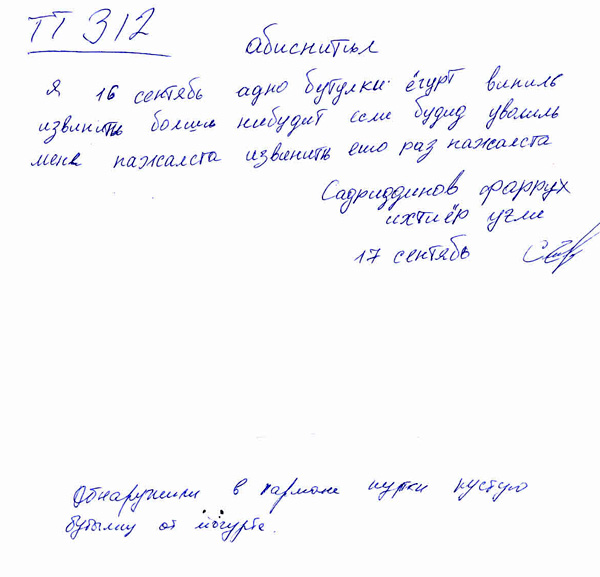 ТТ 312
абиснитъл
Я 16 сентябь адно бутулки ёгурт випиль
извинить болиш нибудит если будид уволиль
меня пажалста извенить ешо раз пажалста
Садриддинов фаррух
ихтиёр угли
17 сентябь
Обнаружили в кармане куртки пустую
бутылку от йогурта.